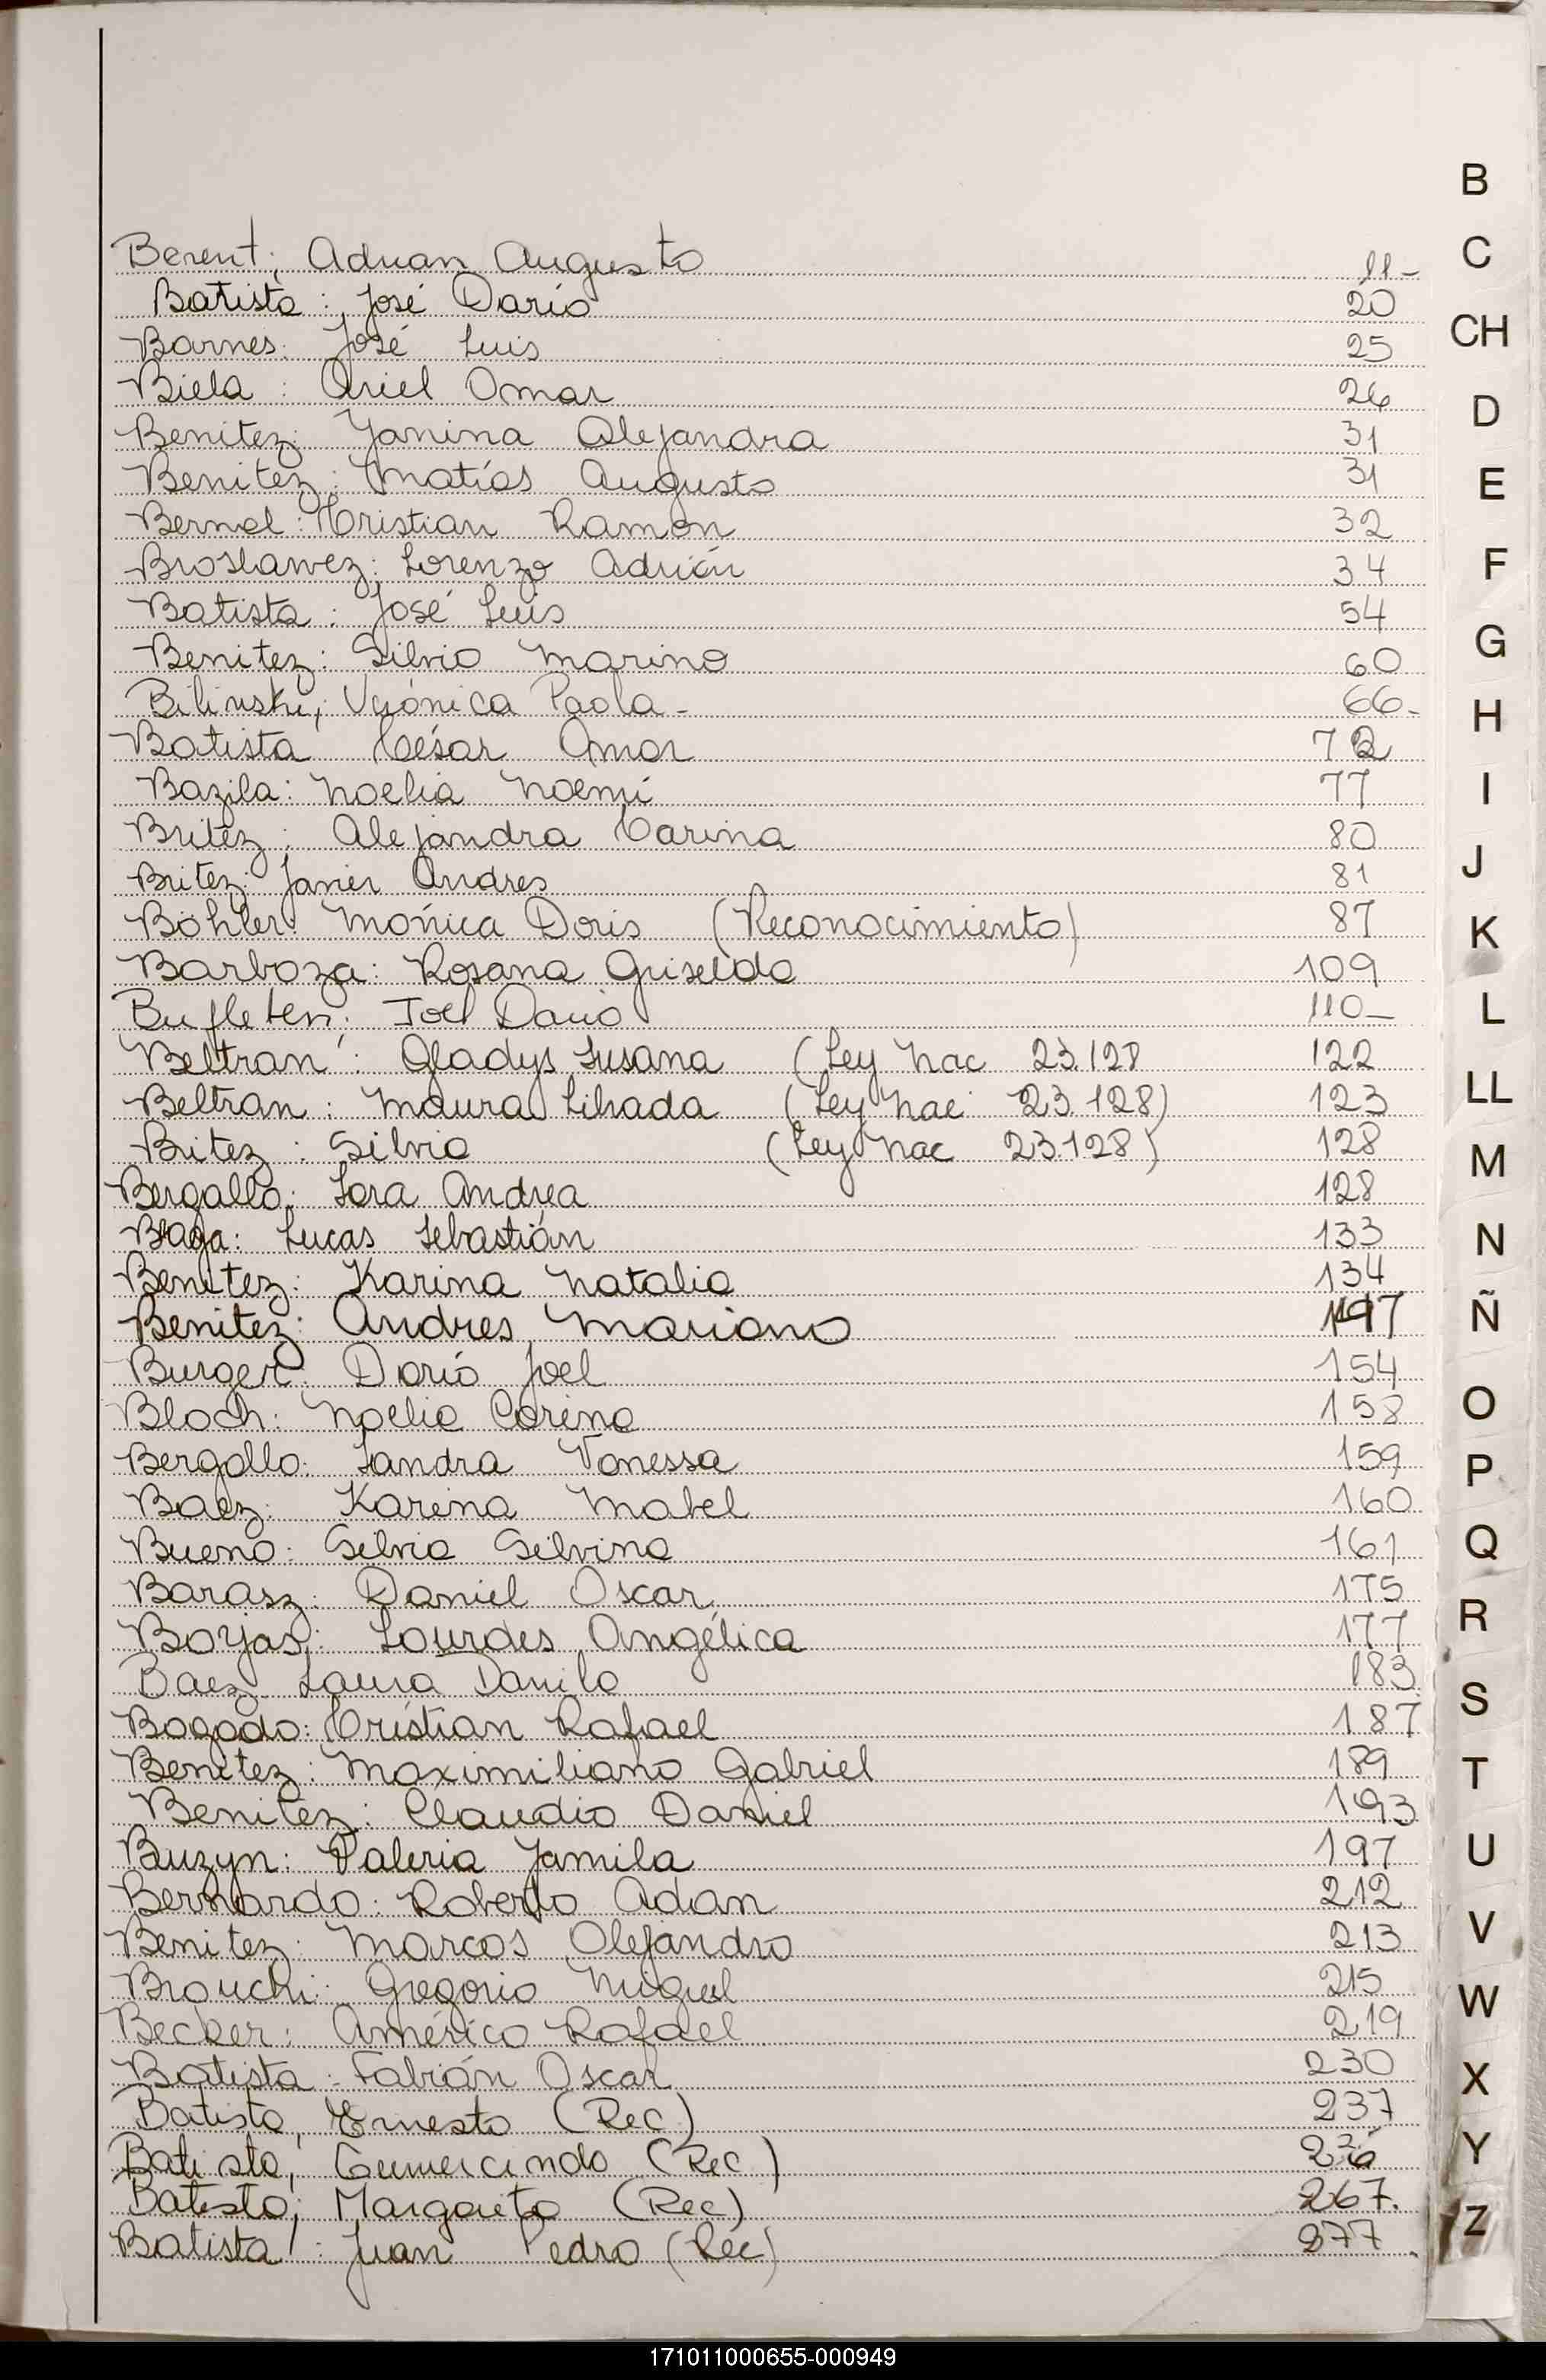 Berent; Adrian Augusto 11-
Batista: José Darío 20
Barnes: José Luis 25
Biela: Ariel Omar 26
Benitez: Yanina Alejandra 31
Benitez: Matías Augusto 31
Bernal: Cristian Ramon 32
Broslavez: Lorenzo Adrián 34
Batista: José Luis 54
Benitez: Silvio Marino 60
Bilinski, Verónica Paola- 66-
Batista César Omar 72
Bazila: Noelia Noemí 77
Britez: Alejandra Carina 80
Britez: Javier Andres 81
Böhler: Mónica Doris (Reconocimiento) 87
Barboza: Rosana Griselda 109
Bufleten: Joel Dario 110-
Beltran: Gladys Susana (Ley Nac 23.128 122
Beltran: Maura Lihada (Ley Nac 23.128) 123
Britez: Silvia (Ley Nac 23.128) 128
Bergallo: Sara Andrea 128
Braga: Lucas Sebastián 133
Benitez: Karina Natalia 134
Benitez: Andres Mariano
Burger: Darío Joel 154
Bloch: Noelia Corina 158
Bergallo: Sandra Vanessa 159
Baez: Karina Mabel 160
Bueno: Silvia Silvina 161
Barasz: Daniel Oscar 175
Boyas: Lourdes Angélica 177
Baez Laura Danila 183
Bogado: Cristian Rafael 187
Benitez: Maximiliano Gabriel 189
Benitez: Claudio Daniel 193
Buzyn: Valeria Yamila 197
Bernardo: Roberto Adian 212
Benitez: Marcos Alejandro 213
Brouchi: Gregorio Miguel 215
Becker: Américo Rafael 219
Batista: Fabián Oscar 230
Batista, Ernesto (Rec.) 237
Batista, Gumercindo (Rec)
Batista; Margarita (Rec) 267.
Batista: Juan Pedro (Rec) 277
B
C
CH
D
E
F
G
H
I
J
K
L
LL
M
N
Ñ
O
P
Q
R
S
T
U
V
W
X
Y
Z
171011000655-000949